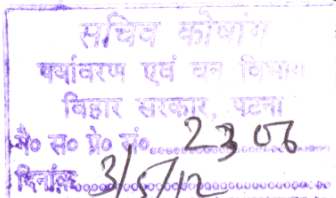 सचिव कोषांग
पर्यावरण एवं वन विभाग
बिहार सरकार, पटना
मै० स० प्रे० सं०....2306
दिनांक 3/5/12